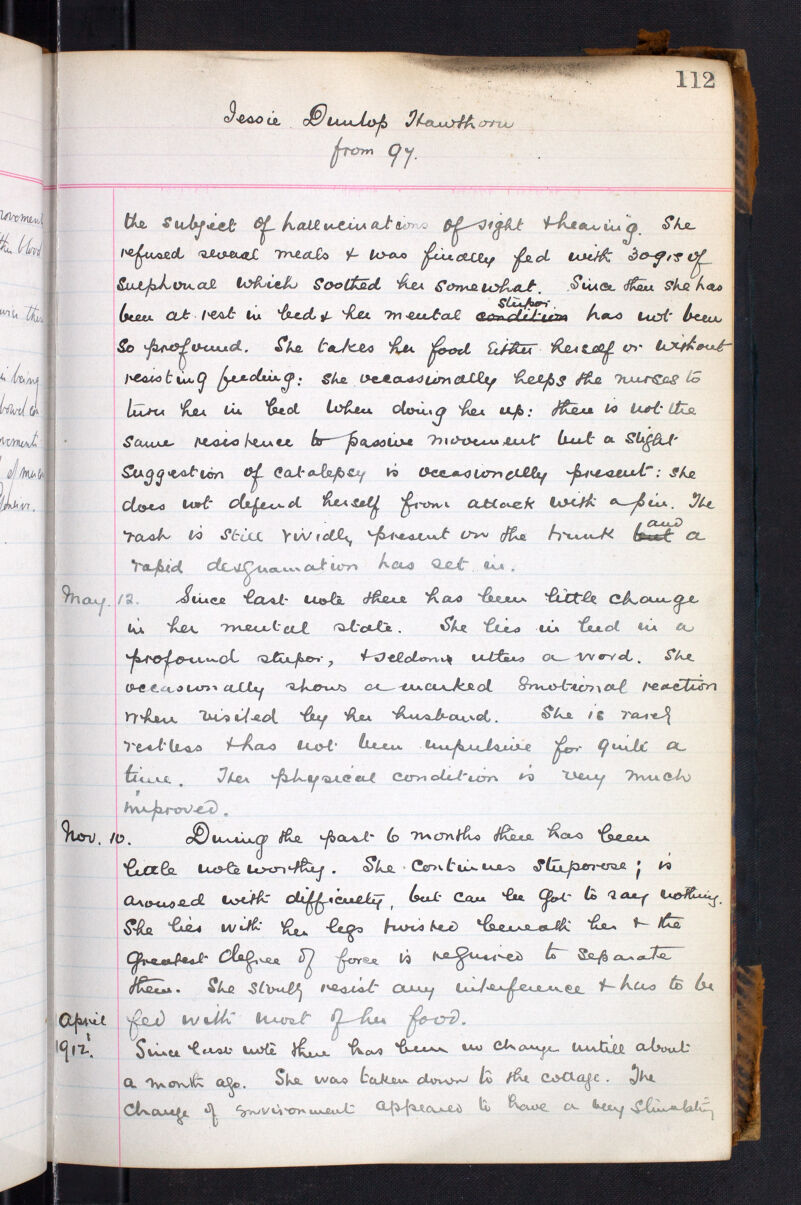 112
Jessie Dunlop Hawthorn
from 97.
the subject of hallucinations of sight & hearing. She
refused several meals & was finally fed with 30grs of
Sulphonal which soothed her somewhat. Since then she has
been at rest in bed & her mental condition stupor has not been
so profound. She takes her food either herself or without
resisting feeding: she occassionally helps the nurses to
turn her in bed when doing her up: there is not the
same resistence to passive movement but a slight
suggestion of catalepsy is occasionally present: she
does not defend herself from attack with a pin. The
rash is still vividly present on the trunk but and a
rapid desquamation has set in.
May. 12. Since last note there has been little change
in her mental state. She lies in bed in a
profound stupor, & seldom utters a word. She
occasionally shows a marked emotional reaction
when visited by her husband. She is rarely
restless & has not been impulsive for quite a
time. Her physical condition is very much
improved.
Nov. 10. During the past 6 months there has been
little noteworthy. She continues stuporose; is
aroused with difficulty, but can be got to say nothing.
She lies with her legs twisted beneath her & the
greatest degree of force is required to separate
them. She stoutly resist any interference & has to be
fed with most of her food.
April
1912.
Since last note there has been no change untill about
a month ago. She was taken down to the cottage. The
change of environment appeared to have a very stimulating
rovement
the blood
this
being
bowel